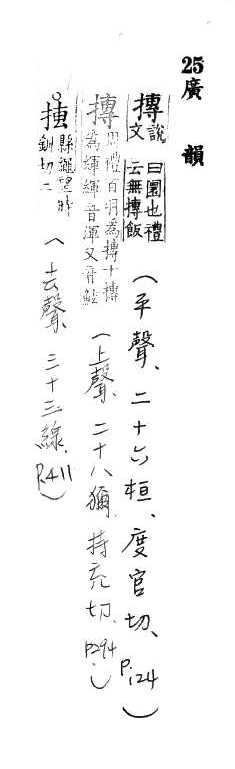 25廣韻
摶說文曰圜也禮云無摶飯(平聲、二十六桓、度官切、P.124)
摶周禮百羽為摶十摶為緷緷音渾又音鯀(上聲、二十八獮、持兗切、P294.)
縣繩望 釧切二(去聲、三十三線、P.411)